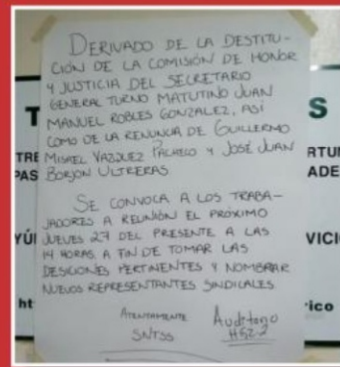 DERIVADO DE LA DESTITU-
CIÓN DE LA COMISIÓN DE HONOR
Y JUSTICIA DEL SECRETARIO
GENERAL TURNO MATUTINO JUAN
MANUEL ROBLES GONZALEZ, ASÍ
COMO DE LA RENUNCIA DE GUILLERMO
MISAEL VAZQUEZ PACHECO Y JOSÉ JUAN
BORJON ULTRERAS
SE CONVOCA A LOS TRABA-
JADORES A REUNIÓN EL PRÓXIMO
JUEVES 27 DEL PRESENTE A LAS
14 HORAS A FIN DE TOMAR LAS
DESICIONES PERTINENTES Y NOMBRAR
NUEVOS REPRESENTANTES SINDICALES
ATENTAMENTE
SNTSS
Auditorio
HGZ-2
T
S
TRE
RTU
PAS
ADE
YÚ
VICI
ht
ico